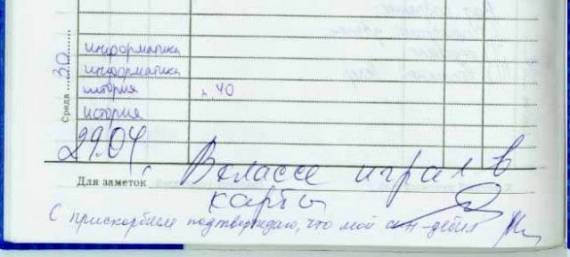 Среда 30
информатика
информатика
история п. 40
история
29.04.
Для заметок В классе играл в
карты
С прискорбием подтверждаю, что мой сын-дебил